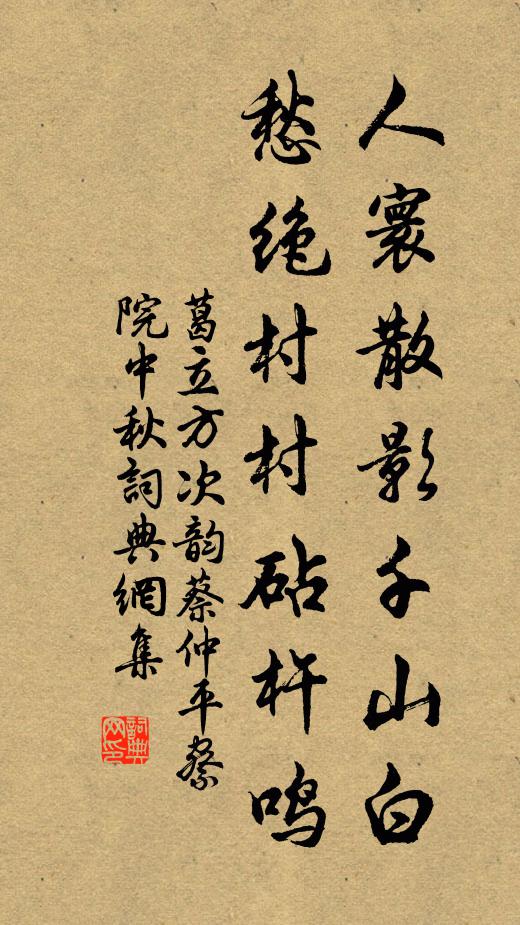 人寰散影千山白
愁绝村村砧杵鸣
葛立方次韵蔡仲平察
院中秋詞典網集
詞典网印